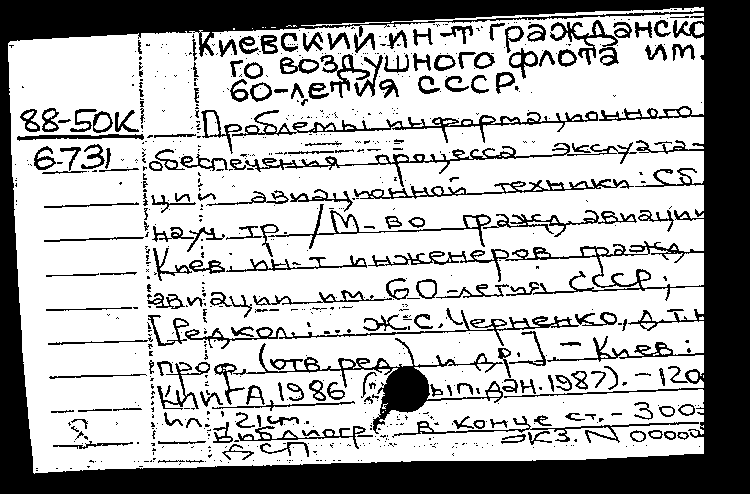 Киевский ин-т гражданско
го воздушного флота им.
60-летия СССР.
88-50К
6-731
Проблемы информационного
обеспечения процесса эксплуата-
ции авиационной техники: Сб
науч. тр. / М-во гражд. авиации
Киев. ин-т инженеров гражд.
авиации им. 60-летия СССР;
[Редкол.: ... Ж.С. Черненко, д.т.н
проф. (отв. ред.) и др.]. - Киев:
КНИГА, 1986 вып. дан. 1987). - 120
ил.; 21 см.
Библиогр. в конце ст. - 300
ДСП. Экз. N 00000